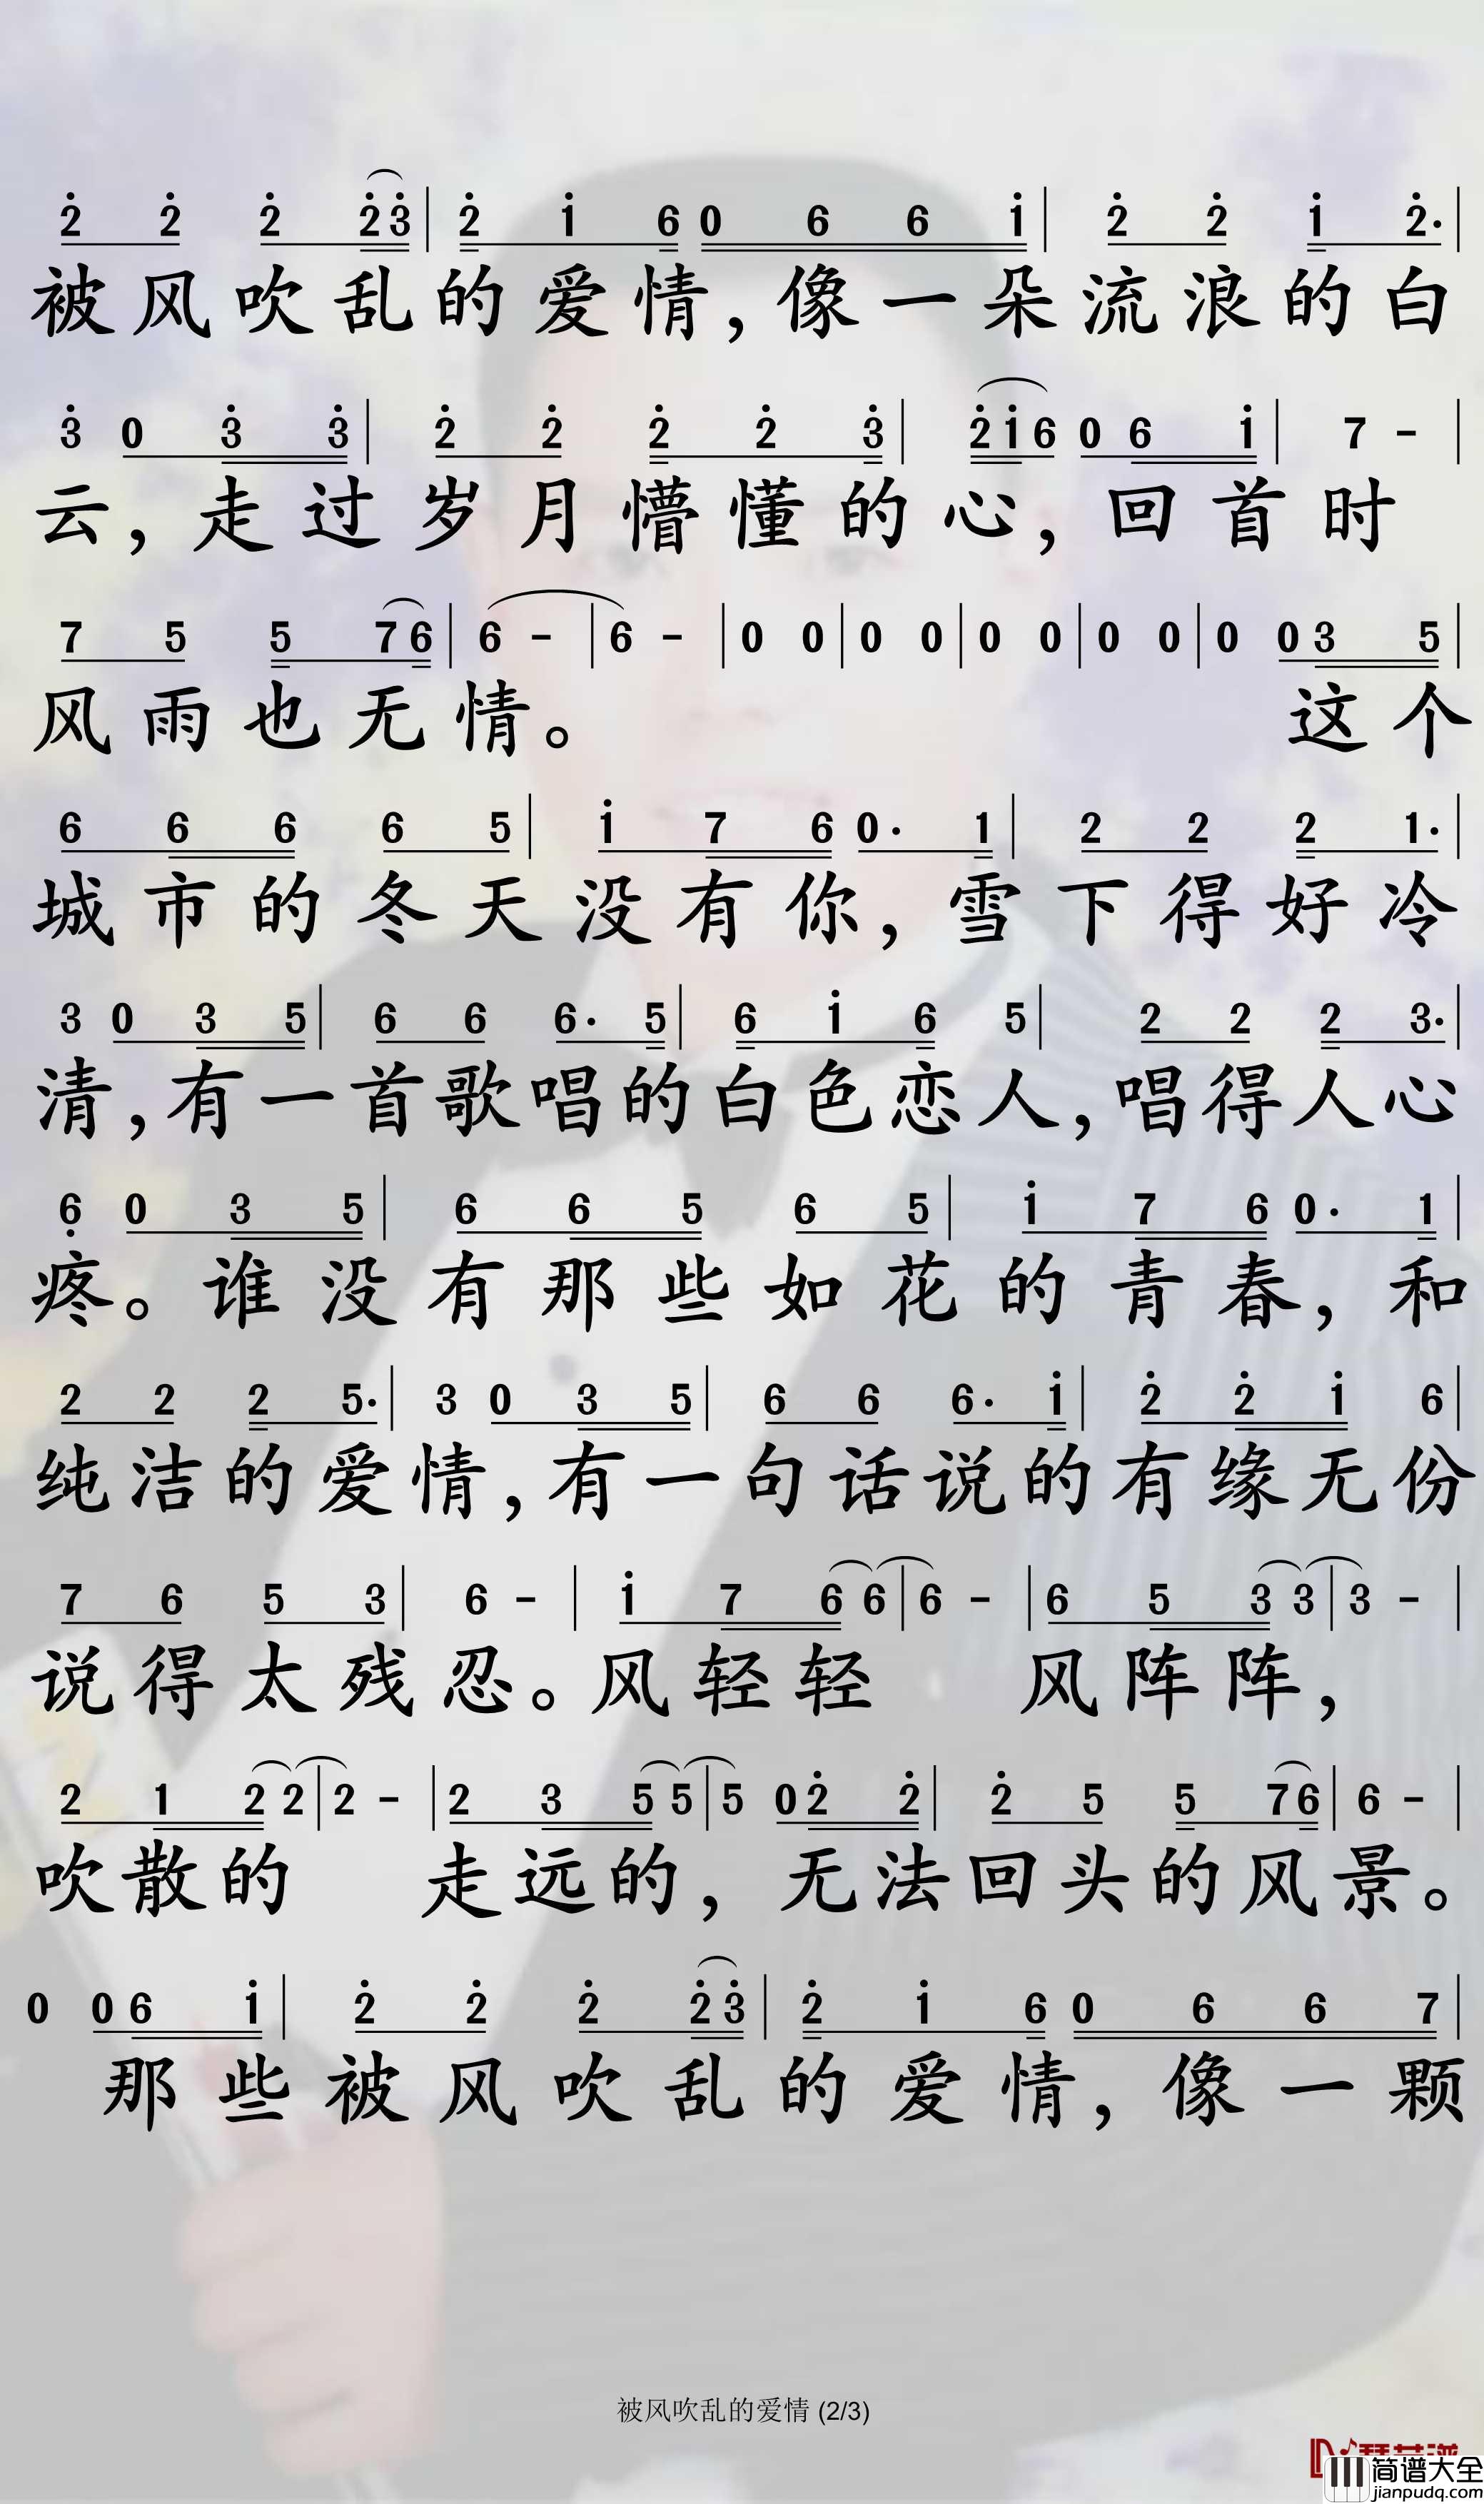 2̇ 2̇ 2̇ 2̇3̇ | 2̇ 1̇ 6 0 6 6 1̇ | 2̇ 2̇ 1̇ 2̇· |
被风吹乱的爱情，像一朵流浪的白
3̇ 0 3̇ 3̇ | 2̇ 2̇ 2̇ 2̇ 3̇ | 2̇1̇6 0 6 1̇ | 7 - |
云，走过岁月懵懂的心，回首时
7 5 5 76 | 6 - | 6 - | 0 0 | 0 0 | 0 0 | 0 0 | 0 0 3 5 |
风雨也无情。 这个
6 6 6 6 5 | 1̇ 7 6 0· 1 | 2 2 2 1· |
城市的冬天没有你，雪下得好冷
3 0 3 5 | 6 6 6· 5 | 6 1̇ 6 5 | 2 2 2 3· |
清，有一首歌唱的白色恋人，唱得人心
6̣ 0 3 5 | 6 6 5 6 5 | 1̇ 7 6 0· 1 |
疼。谁没有那些如花的青春，和
2 2 2 5· | 3 0 3 5 | 6 6 6· 1̇ | 2̇ 2̇ 1̇ 6 |
纯洁的爱情，有一句话说的有缘无份
7 6 5 3 | 6 - | 1̇ 7 6 6 | 6 - | 6 5 3 3 | 3 - |
说得太残忍。风轻轻 风阵阵，
2 1 2 2 | 2 - | 2 3 5 5 | 5 0 2̇ 2̇ | 2̇ 5 5 76 | 6 - |
吹散的 走远的，无法回头的风景。
0 0 6 1̇ | 2̇ 2̇ 2̇ 2̇3̇ | 2̇ 1̇ 6 0 6 6 7 |
那些被风吹乱的爱情，像一颗
被风吹乱的爱情 (2/3)
简谱大全
jianpudq.com